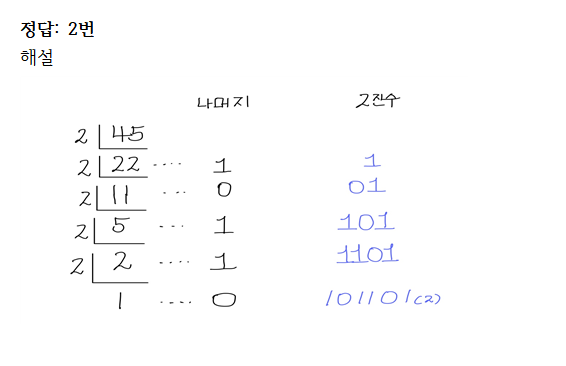 정답: 2번
해설
나머지 2진수
2 45
2 22 ···· 1 1
2 11 ··· 0 01
2 5 ···· 1 101
2 2 ···· 1 1101
1 ···· 0 101101(2)